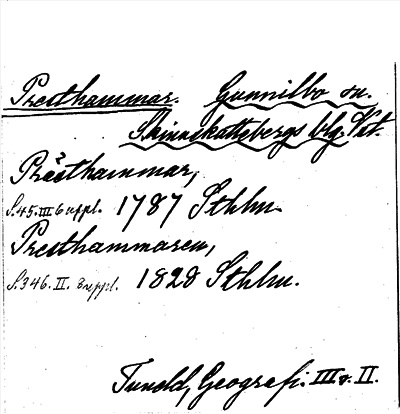 Presthammar. Gunnilbo sn.
Skinnskattebergs blg. Vstl.
Prästhammar,
S.45.III.6 uppl. 1787 Sthlm.
Presthammaren,
S.346.II. 8 uppl. 1828 Sthlm.
Tuneld, Geografi. III & II.